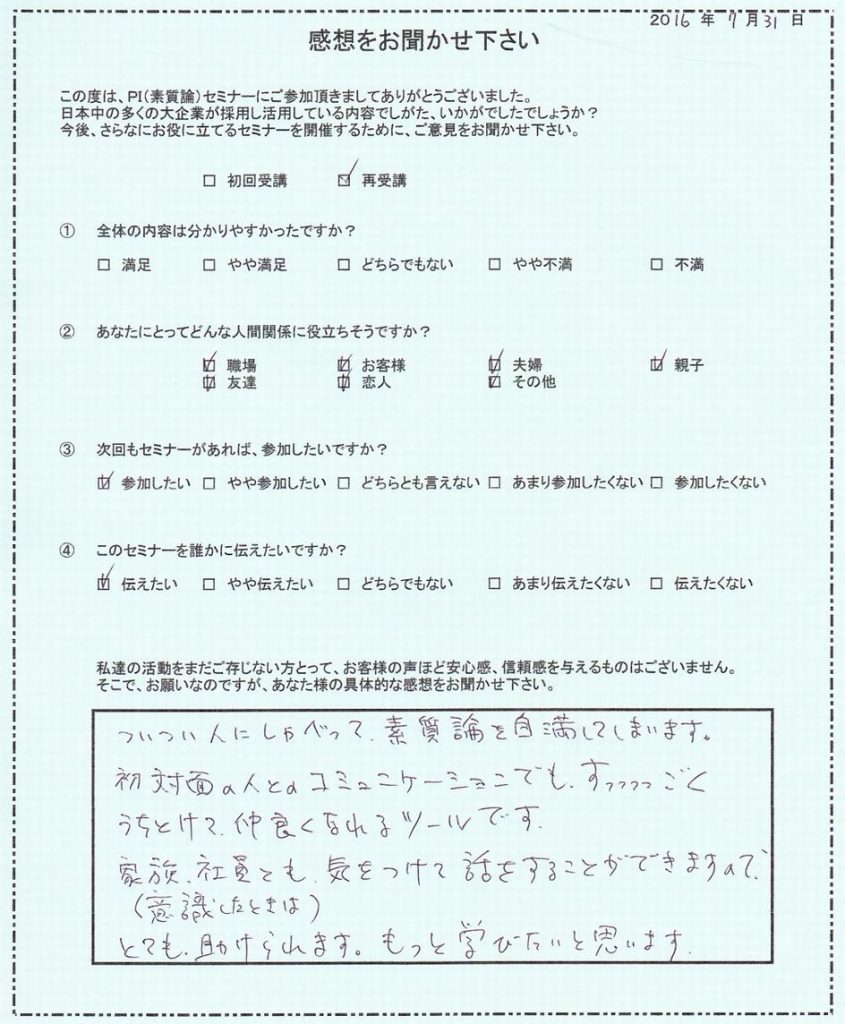 2016年7月31日
感想をお聞かせ下さい
この度は、PI(素質論)セミナーにご参加頂きましてありがとうございました。
日本中の多くの大企業が採用し活用している内容でしがた、いかがでしたでしょうか？
今後、さらなにお役に立てるセミナーを開催するために、ご意見をお聞かせ下さい。
□ 初回受講 ☑ 再受講
① 全体の内容は分かりやすかったですか？
□ 満足 □ やや満足 □ どちらでもない □ やや不満 □ 不満
② あなたにとってどんな人間関係に役立ちそうですか？
☑ 職場 ☑ お客様 ☑ 夫婦 ☑ 親子
☑ 友達 ☑ 恋人 ☑ その他
③ 次回もセミナーがあれば、参加したいですか？
☑ 参加したい □ やや参加したい □ どちらとも言えない □ あまり参加したくない □ 参加したくない
④ このセミナーを誰かに伝えたいですか？
☑ 伝えたい □ やや伝えたい □ どちらでもない □ あまり伝えたくない □ 伝えたくない
私達の活動をまだご存じない方とって、お客様の声ほど安心感、信頼感を与えるものはございません。
そこで、お願いなのですが、あなた様の具体的な感想をお聞かせ下さい。
ついつい人にしゃべって、素質論を自満してしまいます。
初対面の人とのコミュニケーションでも、すっっっっごく
うちとけて、仲良くなれるツールです。
家族、社員とも、気をつけて話をすることができますので、
(意識したときは)
とても、助けられます。もっと学びたいと思います。